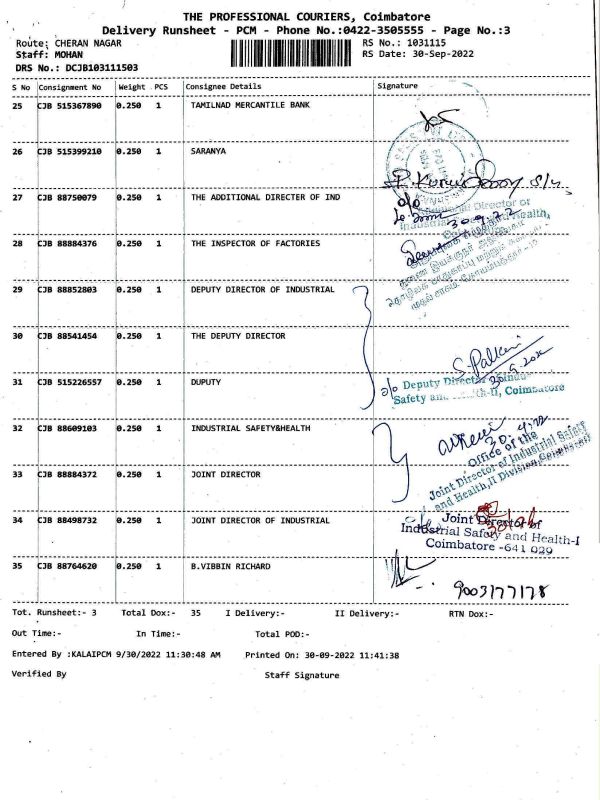 THE PROFESSIONAL COURIERS, Coimbatore
Delivery Runsheet - PCM - Phone No.:0422-3505555 - Page No.:3
Route: CHERAN NAGAR RS No.: 1031115
Staff: MOHAN RS Date: 30-Sep-2022
DRS No.: DCJB103111503
S No Consignment No Weight PCS Consignee Details Signature
25 CJB 515367890 0.250 1 TAMILNAD MERCANTILE BANK
26 CJB 515399210 0.250 1 SARANYA
27 CJB 88750079 0.250 1 THE ADDITIONAL DIRECTER OF IND
Director of
Industrial Health,
30.9.22
28 CJB 88884376 0.250 1 THE INSPECTOR OF FACTORIES
29 CJB 88852803 0.250 1 DEPUTY DIRECTOR OF INDUSTRIAL
30 CJB 88541454 0.250 1 THE DEPUTY DIRECTOR
31 CJB 515226557 0.250 1 DUPUTY
Deputy Director
Safety and Health-II, Coimbatore
32 CJB 88609103 0.250 1 INDUSTRIAL SAFETY&HEALTH
Office of the
Joint Director of Industrial Safety
and Health,II Division,Coimbatore
33 CJB 88884372 0.250 1 JOINT DIRECTOR
34 CJB 88498732 0.250 1 JOINT DIRECTOR OF INDUSTRIAL
Joint Director of
Industrial Safety and Health-I
Coimbatore -641 029
35 CJB 88764620 0.250 1 B.VIBBIN RICHARD
9003177178
Tot. Runsheet:- 3 Total Dox:- 35 I Delivery:- II Delivery:- RTN Dox:-
Out Time:- In Time:- Total POD:-
Entered By :KALAIPCM 9/30/2022 11:30:48 AM Printed On: 30-09-2022 11:41:38
Verified By Staff Signature